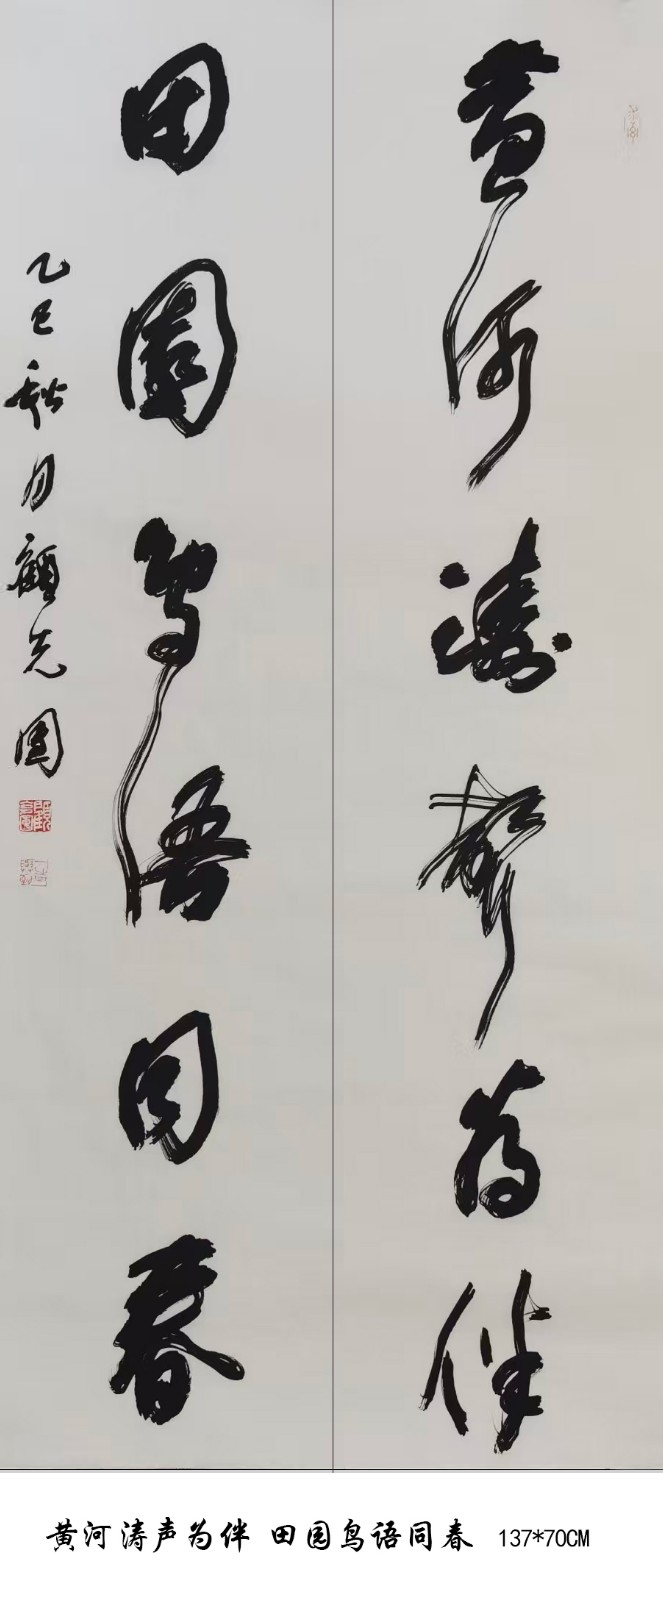 黄河涛聲为伴
田園鸟语同春
乙巳秋月顾先国
黄河涛声为伴 田园鸟语同春 137*70CM